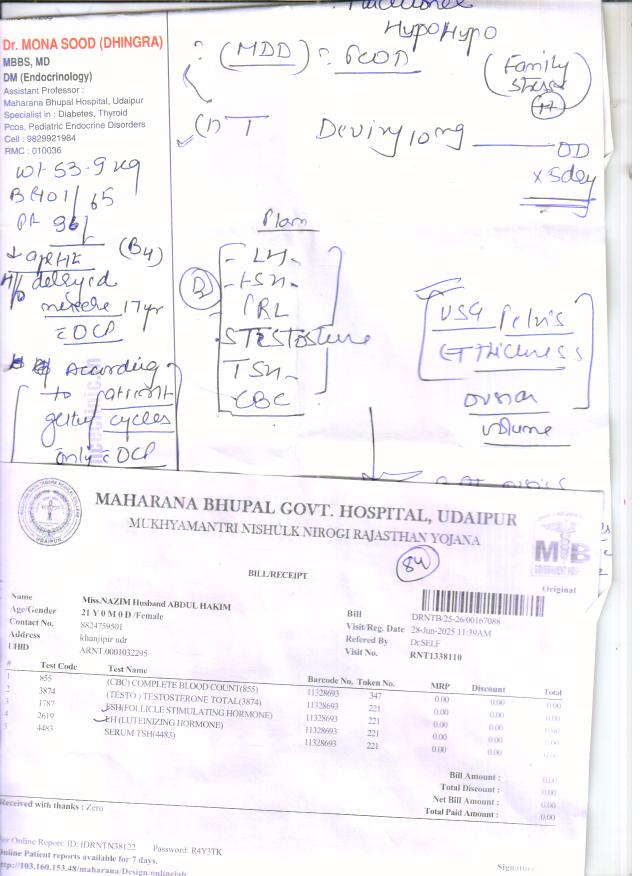 Dr. MONA SOOD (DHINGRA)
MBBS, MD
DM (Endocrinology)
Assistant Professor :
Maharana Bhupal Hospital, Udaipur
Specialist in : Diabetes, Thyroid
Pcos, Pediatric Endocrine Disorders
Cell : 9829921984
RMC : 010036
Wt 53.9 kg
65
delayed
17yr
c̄ OCP
According
to patient
cycles
only c̄ OCP
Hypo Hypo
(MDD) PCOD
(Family
stress
T Deviry 10mg OD
x 5day
Plan
- LH
- FSH
PRL
S Testosterone
TSH
CBC
USG Pelvis
ET Thickness
ovarian
volume
MAHARANA BHUPAL GOVT. HOSPITAL, UDAIPUR
MUKHYAMANTRI NISHULK NIROGI RAJASTHAN YOJANA
84
MB
GOVERNMENT
UDAIPUR
BILL/RECEIPT
Original
Name Miss.NAZIM Husband ABDUL HAKIM
Age/Gender 21 Y 0 M 0 D /Female
Contact No. 8824759501
Address khanjipir udr
UHID ARNT.0001032295
Bill DRNTB/25-26/00167088
Visit/Reg. Date 28-Jun-2025 11:39AM
Refered By Dr.SELF
Visit No. RNT1338110
# Test Code Test Name Barcode No. Token No. MRP Discount Total
1 855 (CBC) COMPLETE BLOOD COUNT(855) 11328693 347 0.00 0.00 0.00
2 3874 (TESTO ) TESTOSTERONE TOTAL(3874) 11328693 221 0.00 0.00 0.00
3 1787 FSH(FOLLICLE STIMULATING HORMONE) 11328693 221 0.00 0.00 0.00
4 2619 LH (LUTEINIZING HORMONE) 11328693 221 0.00 0.00 0.00
5 4483 SERUM TSH(4483) 11328693 221 0.00 0.00 0.00
Bill Amount : 0.00
Total Discount : 0.00
Net Bill Amount : 0.00
Total Paid Amount : 0.00
Received with thanks : Zero
For Online Report: ID: IDRNTN38122 Password: R4Y3TK
Online Patient reports available for 7 days.
http://103.160.153.48/maharana/Design/onlinelab
Signature